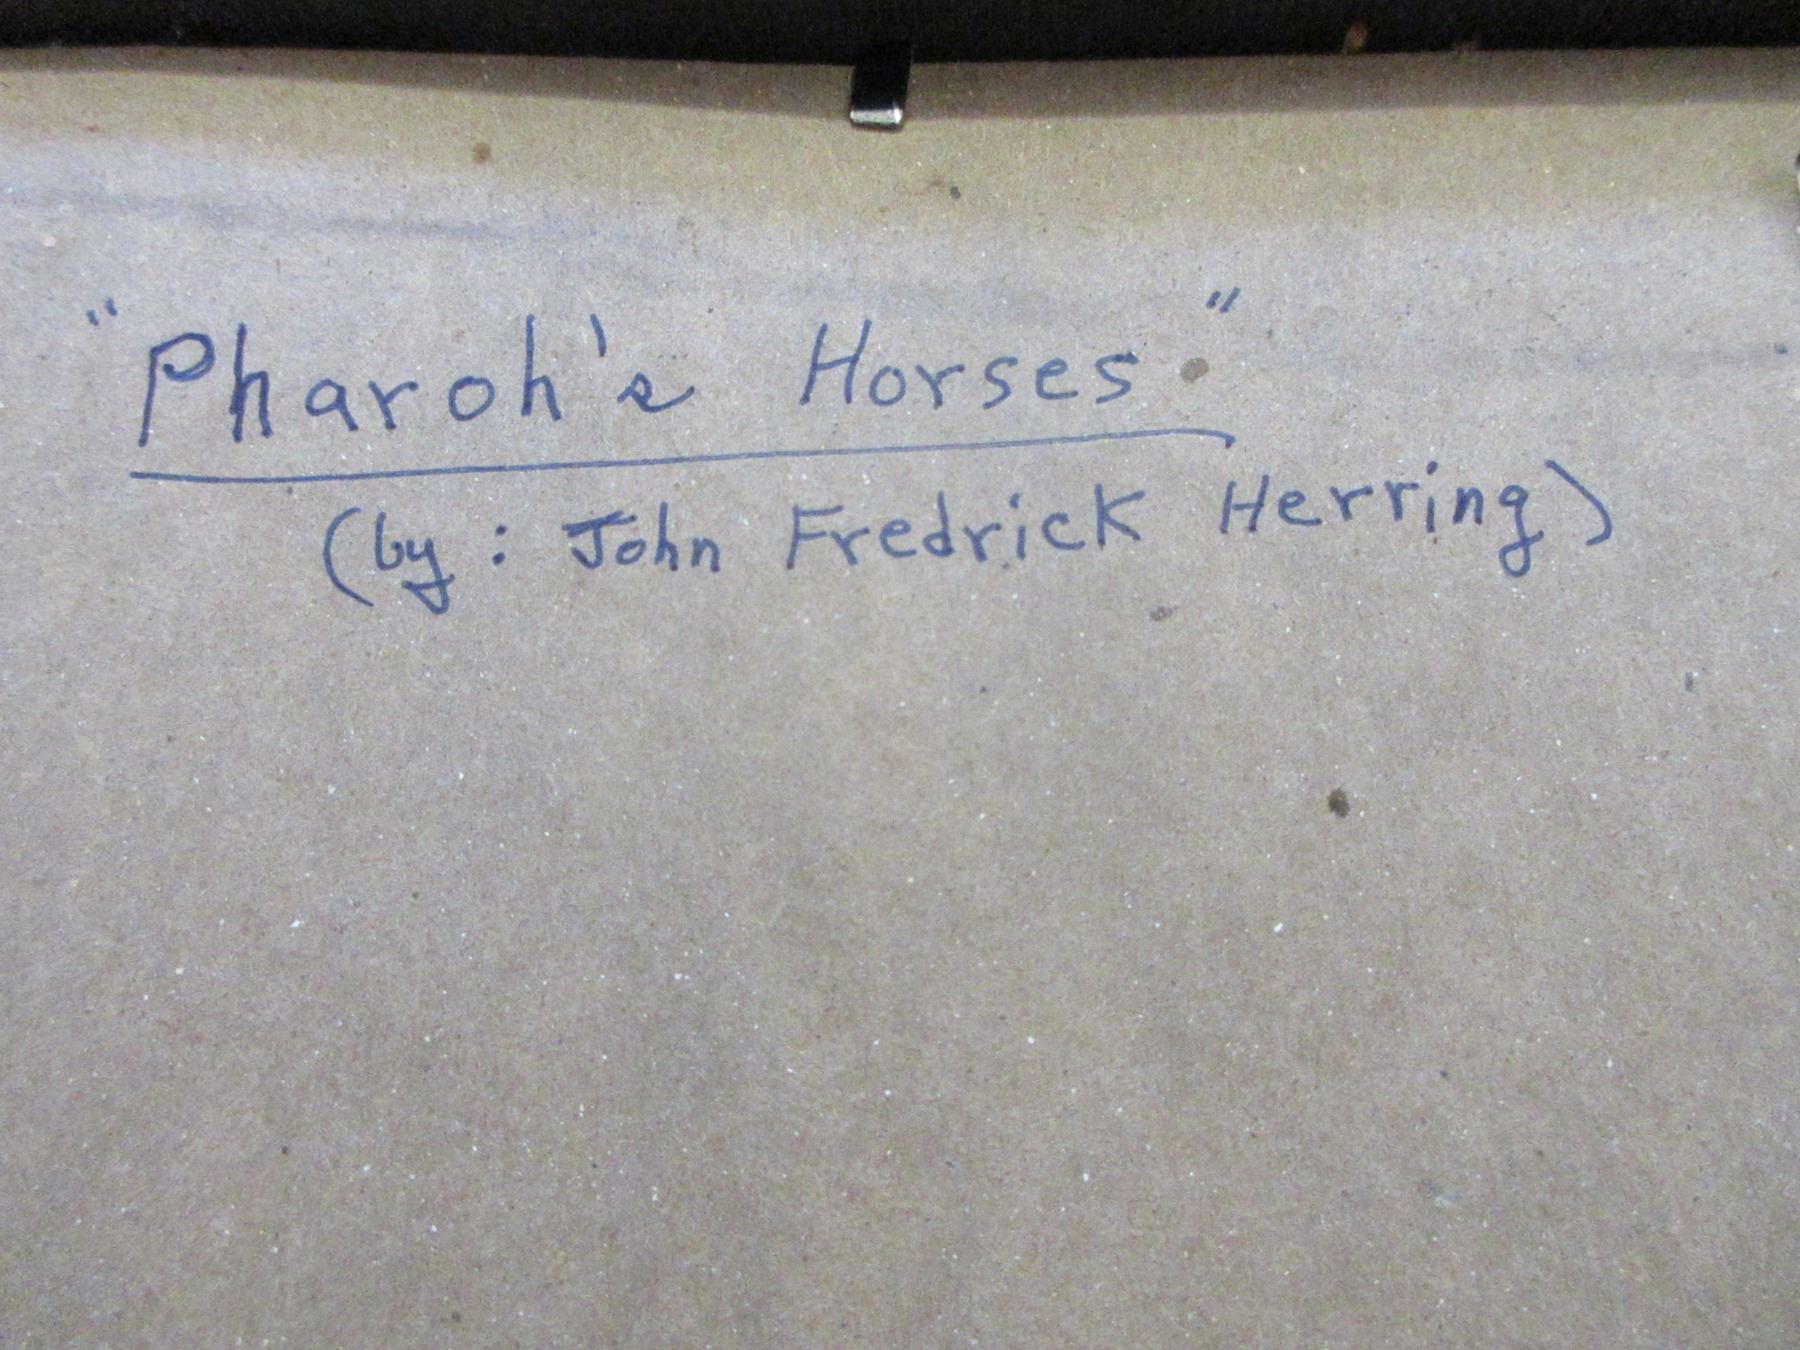 "Pharoh's Horses."
(by: John Fredrick Herring)